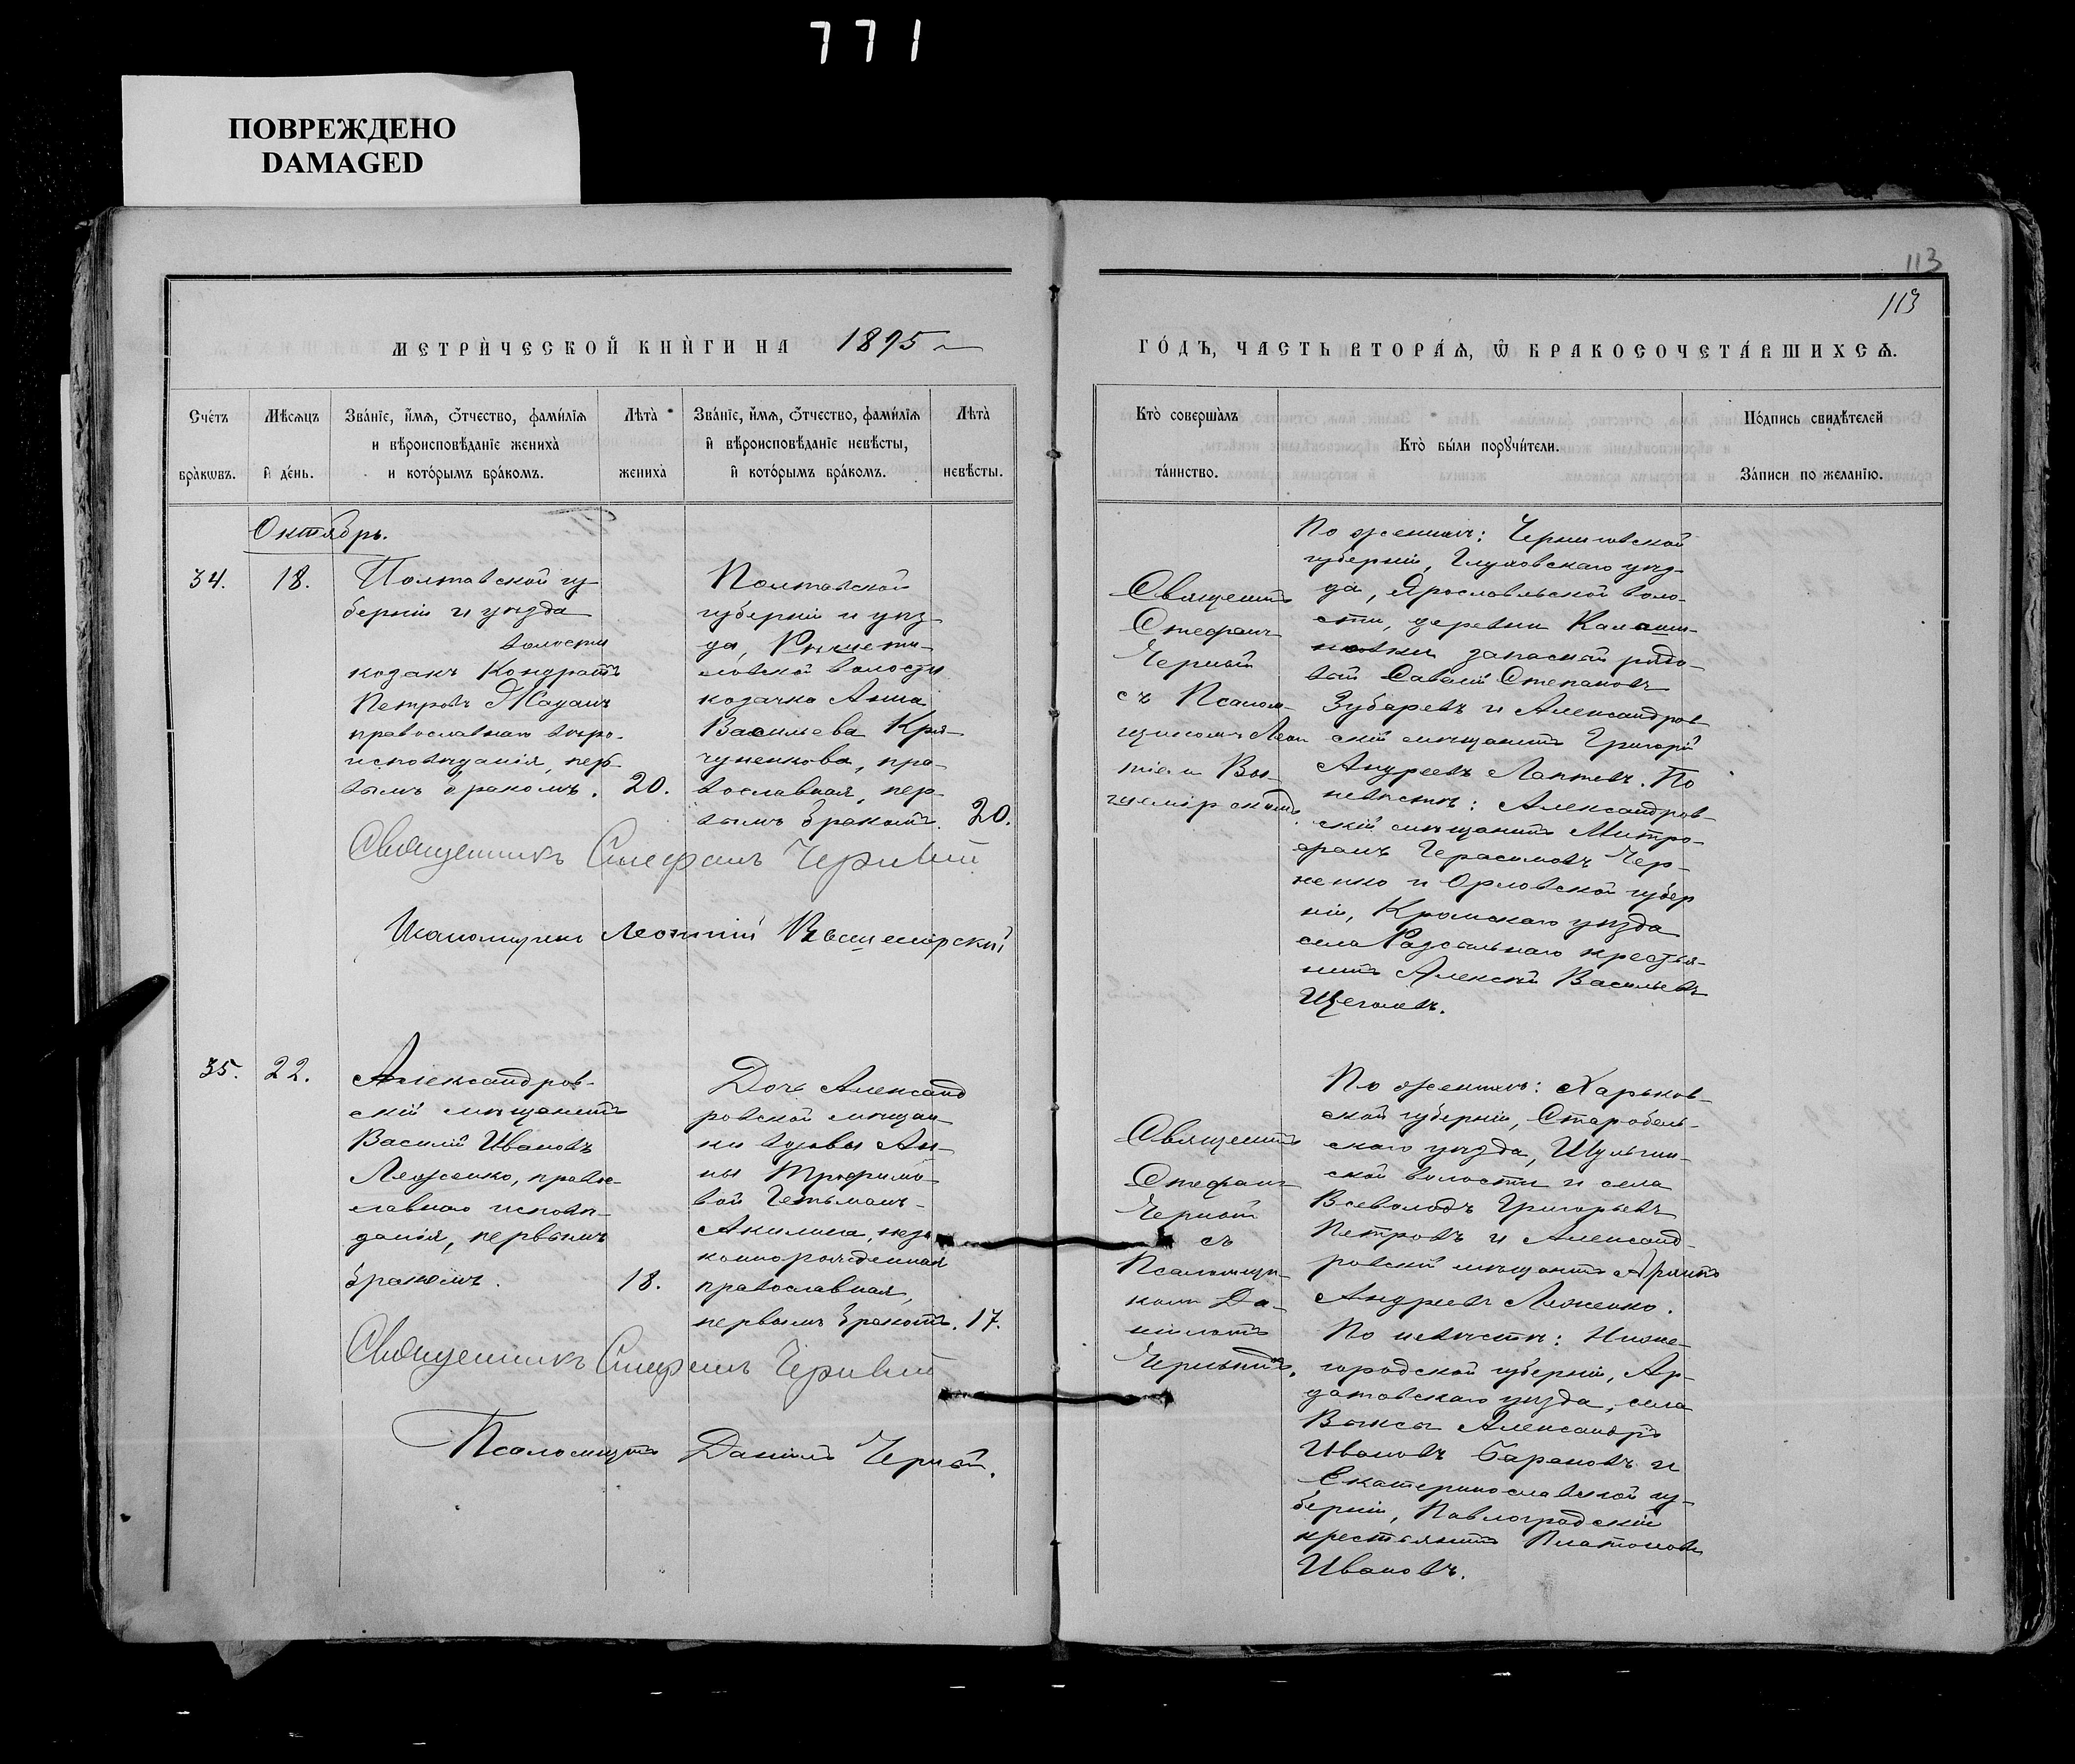 771
ПОВРЕЖДЕНО
DAMAGED
113
113
МЕТРИ́ЧЕСКОЙ КНИ́ГИ НА 1895
ГО́ДЪ, ЧАСТЬ ВТОРА́Ѧ, Ѿ БРАКОСОЧЕТА́ВШИХСѦ.
Сче́тъ бра́кѡвъ.
Мѣ́сѧцъ и҆ де́нь.
Зва́нїе, и҆́мѧ, ѻ҆́тчество, фами́лїѧ
и вѣроисповѣ́данїе жениха̀
и кото́рымъ бра́комъ.
Лѣта̀ жениха̀
Зва́нїе, и҆́мѧ, ѻ҆́тчество, фами́лїѧ
и҆ вѣроисповѣ́данїе невѣ́сты,
и҆ кото́рымъ бра́комъ.
Лѣта̀ невѣ́сты.
Кто̀ соверша́лъ та́инство.
Кто̀ бы́ли порꙋчи́тели.
По́дпись свидѣ́телей
За́писи по жела́нїю.
Октябрь.
34.
18.
Полтавской гу-
берніи и уѣзда
волости
козакъ Кондратъ
Петровъ Мацанъ
православнаго вѣро-
исповѣданія, пер-
вымъ бракомъ.
20.
Полтавской
губерніи и уѣз-
да,
ловской волости
козачка Анна
Васильева Кри-
чуненкова, пра-
вославная, пер-
вымъ бракомъ.
20.
Священникъ Стефанъ Чернвый
Псаломщикъ Леонтій Вышемірскій
Священникъ
Стефанъ
Черный
съ Псалом-
щикомъ Леон
тіемъ Вы-
шемірскимъ.
По женихѣ: Черниговской
губерніи, Глуховскаго уѣз-
да, Ярославльской воло-
сти, деревни Калаши-
новки запасной рядо-
вой Савелій Степановъ
Зубаревъ и Александров-
скій мѣщанинъ Григорій
Андреевъ Лаптевъ. По
невѣстѣ: Александров-
скій мѣщанинъ Митро-
фанъ Герасимовъ Чер-
ненко и Орловской губер
ніи, Кромскаго уѣзда
села крестья-
нинъ Алексѣй Васильевъ
Щеголевъ.
35.
22.
Александров-
скій мѣщанинъ
Василій Ивановъ
Леженко, право-
славнаго исповѣ-
данія, первымъ
бракомъ.
18.
Дочь Александ
ровской мѣщан-
ки вдовы Ан-
ны Трофимо-
вой Гетьманъ-
Акилина, неза
коннорожденная
православная,
первымъ бракомъ.
17.
Священникъ Стефанъ Чернвый
Псаломщикъ Даніилъ Черный.
Священникъ
Стефанъ
Черный
съ
Псаломщи-
комъ Да-
ніиломъ
Чернымъ.
По женихѣ: Харьков-
ской губерніи, Старобель-
скаго уѣзда, Шульгин-
ской волости и села
Всеволодъ Григорьевъ
Петровъ и Александ-
ровскій мѣщанинъ
Андреевъ Леженко.
По невѣстѣ: Ниже-
городской губерніи, Ар-
датовскаго уѣзда, села
Выксы Александръ
Ивановъ Барановъ и
Екатеринославской гу-
берніи, Павлоградскій
крестьянинъ Платонъ
Ивановъ.